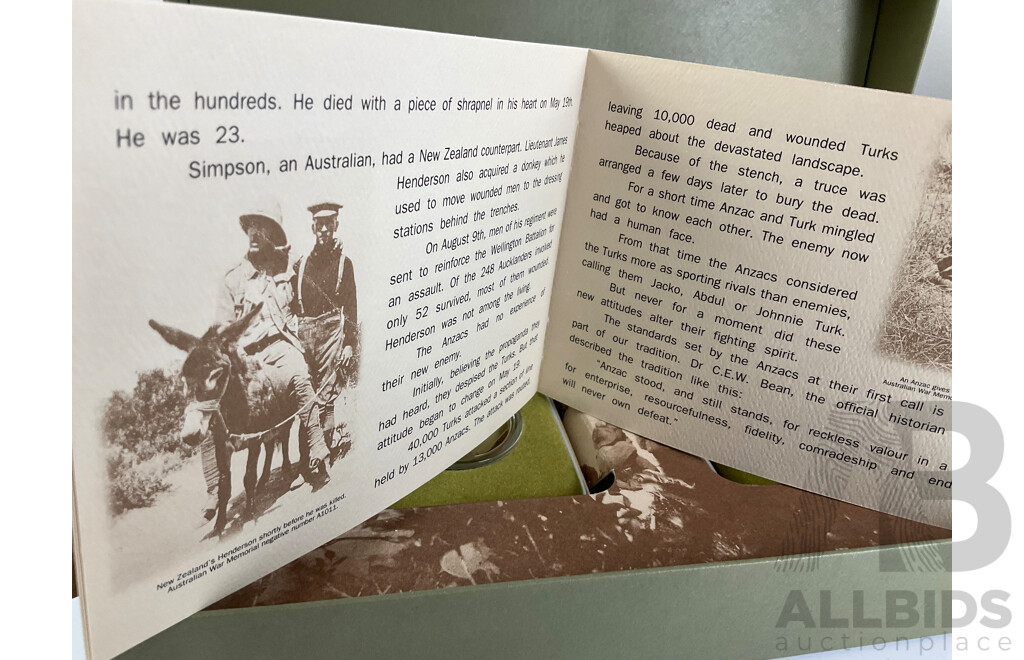 in the hundreds. He died with a piece of shrapnel in his heart on May 19th.
He was 23.
Simpson, an Australian, had a New Zealand counterpart. Lieutenant James
Henderson also acquired a donkey which he
used to move wounded men to the dressing
stations behind the trenches.
On August 9th, men of his regiment were
sent to reinforce the Wellington Battalion for
an assault. Of the 248 Aucklanders involved
only 52 survived, most of them wounded
Henderson was not among the living.
The Anzacs had no experience of
their new enemy.
Initially, believing the propaganda they
had heard, they despised the Turks. But that
attitude began to change on May 19.
40,000 Turks attacked a section of line
held by 13,000 Anzacs. The attack was routed,
New Zealand's Henderson shortly before he was killed.
Australian War Memorial negative number A1011.
leaving 10,000 dead and wounded Turks
heaped about the devastated landscape.
Because of the stench, a truce was
arranged a few days later to bury the dead.
For a short time Anzac and Turk mingled
and got to know each other. The enemy now
had a human face.
From that time the Anzacs considered
the Turks more as sporting rivals than enemies,
calling them Jacko, Abdul or Johnnie Turk.
But never for a moment did these
new attitudes alter their fighting spirit.
The standards set by the Anzacs at their first call is
part of our tradition. Dr C.E.W. Bean, the official historian
described the tradition like this:
"Anzac stood, and still stands, for reckless valour in a
for enterprise, resourcefulness, fidelity, comradeship and end
will never own defeat."
An Anzac gives
Australian War Memo
B
ALLBIDS
auctionplace